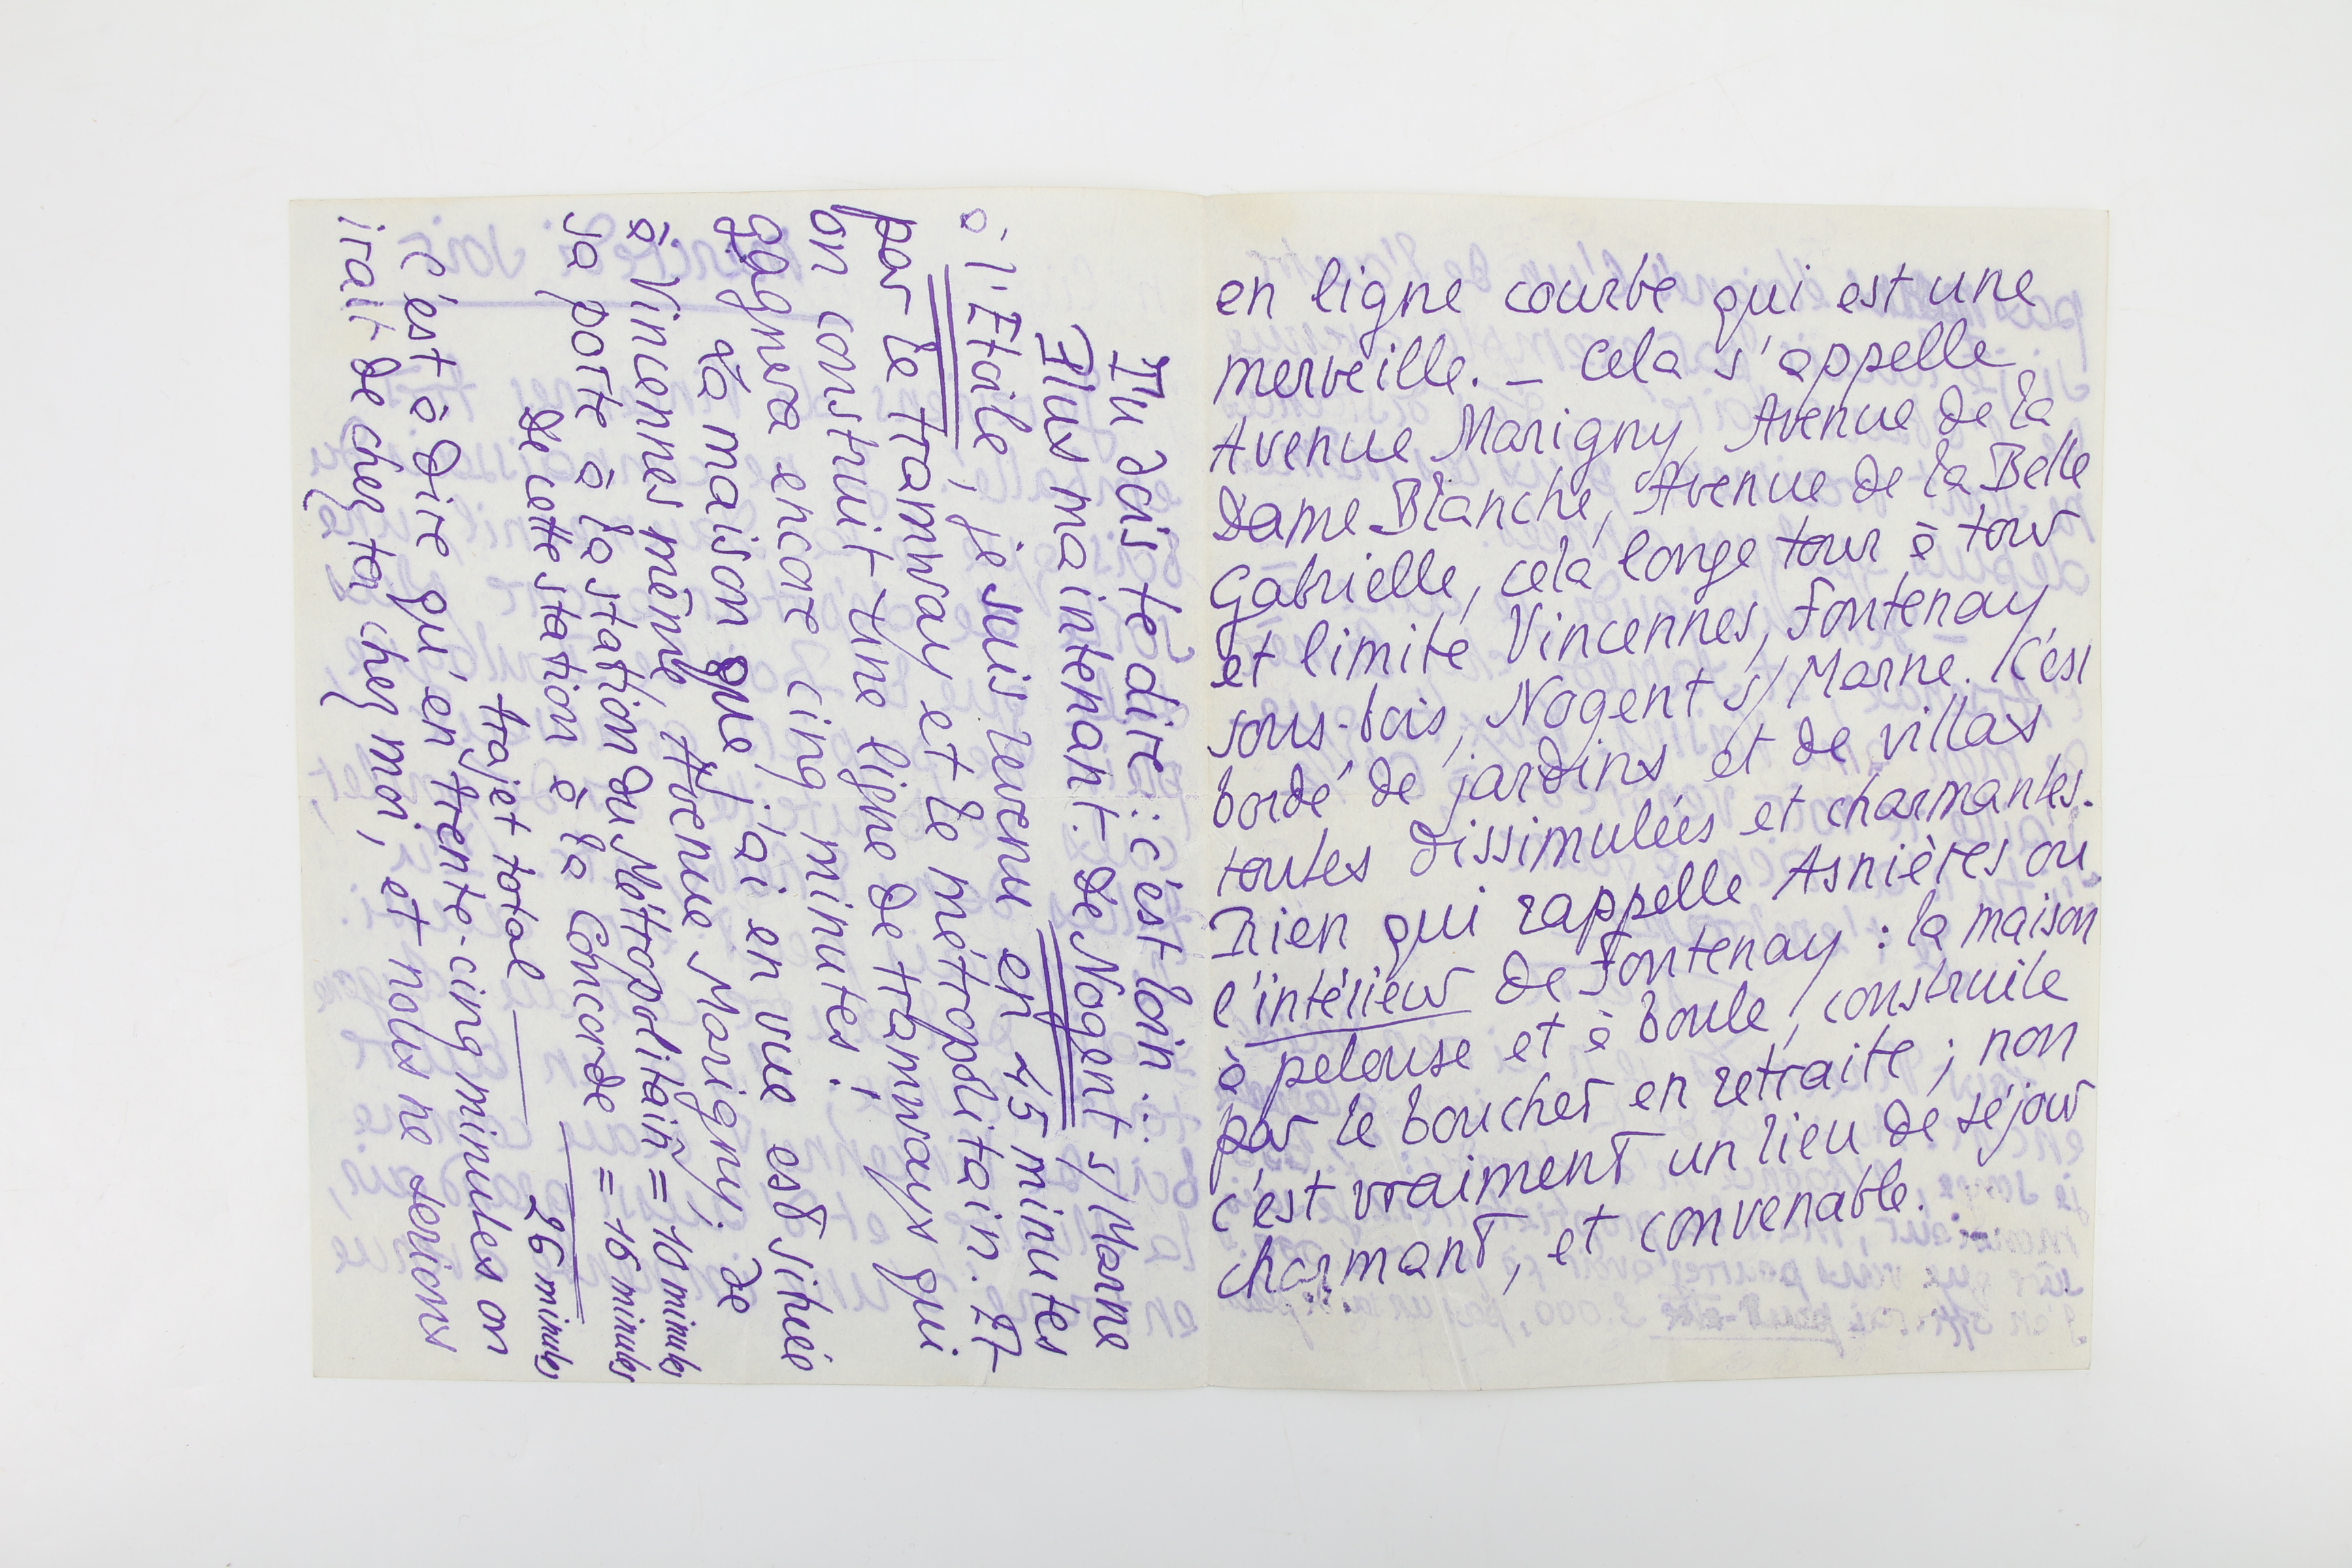 en ligne courbe qui est une
merveille. – Cela s'appelle
Avenue Marigny, Avenue de la
Dame Blanche, Avenue de la Belle
Gabrielle, cela longe tour à tour
et limite Vincennes, Fontenay
sous-bois, Nogent s/ Marne. C'est
bordé de jardins et de villas
toutes dissimulées et charmantes.
Rien qui rappelle Asnières ou
l'intérieur de Fontenay : la maison
à pelouse et à boule, construite
par le boucher en retraite ; non
c'est vraiment un lieu de séjour
charmant, et convenable.
Tu vas te dire : c'est loin...
Plus maintenant. De Nogent s/ Marne
à l'Etoile, je suis revenu en 45 minutes
par le tramway et le métropolitain. Et
on construit une ligne de tramways qui
gagnera encore cinq minutes !
La maison que j'ai en vue est située
à Vincennes même Avenue Marigny ; de
sa porte à la station du Métropolitain = 10 minutes
de cette station à la Concorde = 16 minutes
trajet total 26 minutes
C'est à dire qu'en trente-cinq minutes on
irait de chez toi chez moi, et nous ne serions